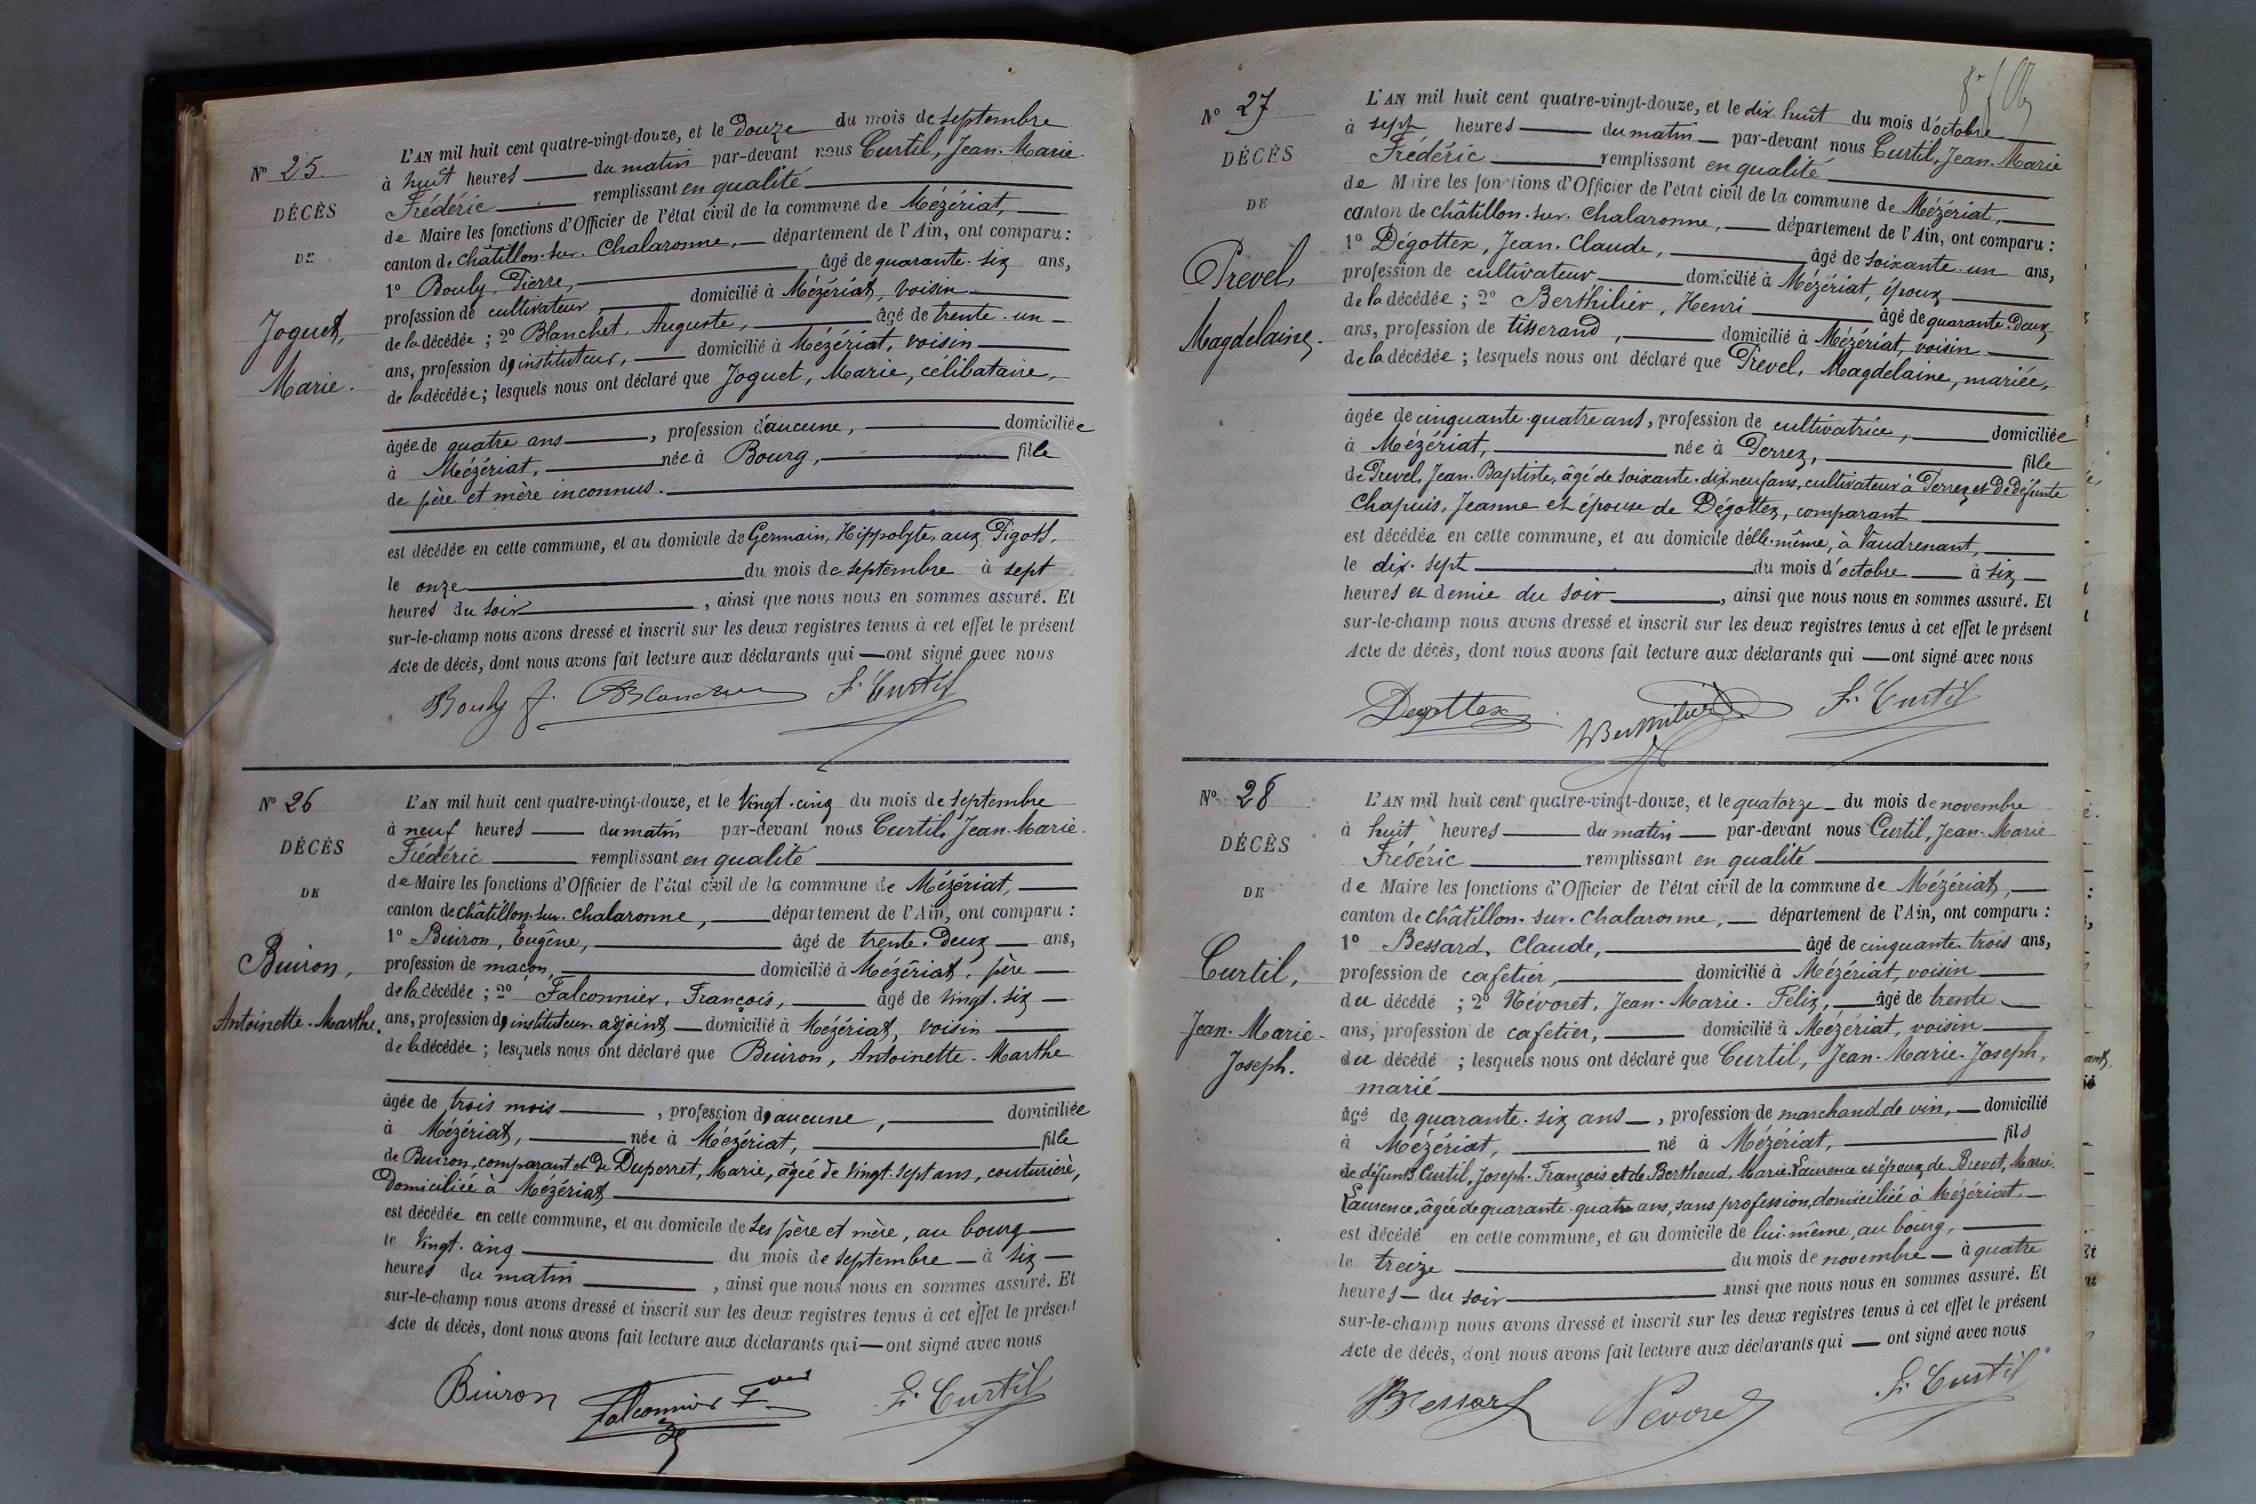 Nº 25.
DÉCÈS
DE
Joguet,
Marie.
L'AN mil huit cent quatre-vingt-douze, et le douze du mois de septembre
à huit heures du matin par-devant nous Curtil, Jean-Marie
Frédéric remplissant en qualité
de Maire les fonctions d'Officier de l'état civil de la commune de Mézériat,
canton de châtillon-sur-Chalaronne, département de l'Ain, ont comparu :
1º Bouly, Pierre, âgé de quarante-six ans,
profession de cultivateur, domicilié à Mézériat, voisin
de la décédée ; 2º Blanchet, Auguste, âgé de trente-un
ans, profession d'instituteur, domicilié à Mézériat, voisin
de la décédée ; lesquels nous ont déclaré que Joguet, Marie, célibataire,
âgée de quatre ans, profession d'aucune, domiciliée
à Mézériat, née à Bourg, fille
de père et mère inconnus.
est décédée en cette commune, et au domicile de Germain, Hippolyte, aux Pigots,
le onze du mois de septembre à sept
heures du soir, ainsi que nous nous en sommes assuré. Et
sur-le-champ nous avons dressé et inscrit sur les deux registres tenus à cet effet le présent
Acte de décès, dont nous avons fait lecture aux déclarants qui ont signé avec nous
Bouly Blanchet F. Curtil
Nº 26
DÉCÈS
DE
Buiron,
Antoinette-Marthe.
L'AN mil huit cent quatre-vingt-douze, et le vingt-cinq du mois de septembre
à neuf heures du matin par-devant nous Curtil, Jean-Marie
Frédéric remplissant en qualité
de Maire les fonctions d'Officier de l'état civil de la commune de Mézériat,
canton de châtillon-sur-chalaronne, département de l'Ain, ont comparu :
1º Buiron, Eugène, âgé de trente-deux ans,
profession de maçon, domicilié à Mézériat, père
de la décédée ; 2º Falconnier, François, âgé de vingt-six
ans, profession d'instituteur-adjoint domicilié à Mézériat, voisin
de la décédée ; lesquels nous ont déclaré que Buiron, Antoinette-Marthe
âgée de trois mois, profession d'aucune, domiciliée
à Mézériat, née à Mézériat, fille
de Buiron, comparant et de Duperret, Marie, âgée de vingt-sept ans, couturière,
domiciliée à Mézériat
est décédée en cette commune, et au domicile de ses père et mère, au bourg
le vingt-cinq du mois de septembre à six
heures du matin, ainsi que nous nous en sommes assuré. Et
sur-le-champ nous avons dressé et inscrit sur les deux registres tenus à cet effet le présent
Acte de décès, dont nous avons fait lecture aux déclarants qui ont signé avec nous
Buiron Falconnier F. Curtil
Nº 27
DÉCÈS
DE
Prevel,
Magdelaine.
L'AN mil huit cent quatre-vingt-douze, et le dix-huit du mois d'octobre
à sept heures du matin par-devant nous Curtil, Jean-Marie
Frédéric remplissant en qualité
de Maire les fonctions d'Officier de l'état civil de la commune de Mézériat,
canton de châtillon-sur-Chalaronne, département de l'Ain, ont comparu :
1º Dégottex, Jean-Claude, âgé de soixante-un ans,
profession de cultivateur domicilié à Mézériat, époux
de la décédée ; 2º Berthilier, Henri âgé de quarante-deux
ans, profession de tisserand, domicilié à Mézériat, voisin
de la décédée ; lesquels nous ont déclaré que Prevel, Magdelaine, mariée,
âgée de cinquante-quatre ans, profession de cultivatrice, domiciliée
à Mézériat, née à Perrex, fille
de Prevel, Jean-Baptiste, âgé de soixante-dix-neuf ans, cultivateur à Perrex et de défunte
Chapuis, Jeanne et épouse de Dégottex, comparant
est décédée en cette commune, et au domicile d'elle-même, à Vaudrenant,
le dix-sept du mois d'octobre à six
heures et demie du soir, ainsi que nous nous en sommes assuré. Et
sur-le-champ nous avons dressé et inscrit sur les deux registres tenus à cet effet le présent
Acte de décès, dont nous avons fait lecture aux déclarants qui ont signé avec nous
Degottex Berthilier F. Curtil
Nº 28
DÉCÈS
DE
Curtil,
Jean-Marie-
Joseph.
L'AN mil huit cent quatre-vingt-douze, et le quatorze du mois de novembre
à huit heures du matin par-devant nous Curtil, Jean-Marie
Frédéric remplissant en qualité
de Maire les fonctions d'Officier de l'état civil de la commune de Mézériat,
canton de châtillon-sur-Chalaronne, département de l'Ain, ont comparu :
1º Bessard, Claude, âgé de cinquante-trois ans,
profession de cafetier, domicilié à Mézériat, voisin
du décédé ; 2º Névoret, Jean-Marie-Félix, âgé de trente
ans, profession de cafetier, domicilié à Mézériat, voisin
du décédé ; lesquels nous ont déclaré que Curtil, Jean-Marie-Joseph,
marié
âgé de quarante-six ans, profession de marchand de vin, domicilié
à Mézériat, né à Mézériat, fils
de défunts Curtil, Joseph-François et de Berthoud, Marie-Laurence et époux de Brevet, Marie-
Laurence, âgée de quarante-quatre ans, sans profession, domiciliée à Mézériat,
est décédé en cette commune, et au domicile de lui-même, au bourg,
le treize du mois de novembre à quatre
heures du soir ainsi que nous nous en sommes assuré. Et
sur-le-champ nous avons dressé et inscrit sur les deux registres tenus à cet effet le présent
Acte de décès, dont nous avons fait lecture aux déclarants qui ont signé avec nous
Bessard Névoret F. Curtil